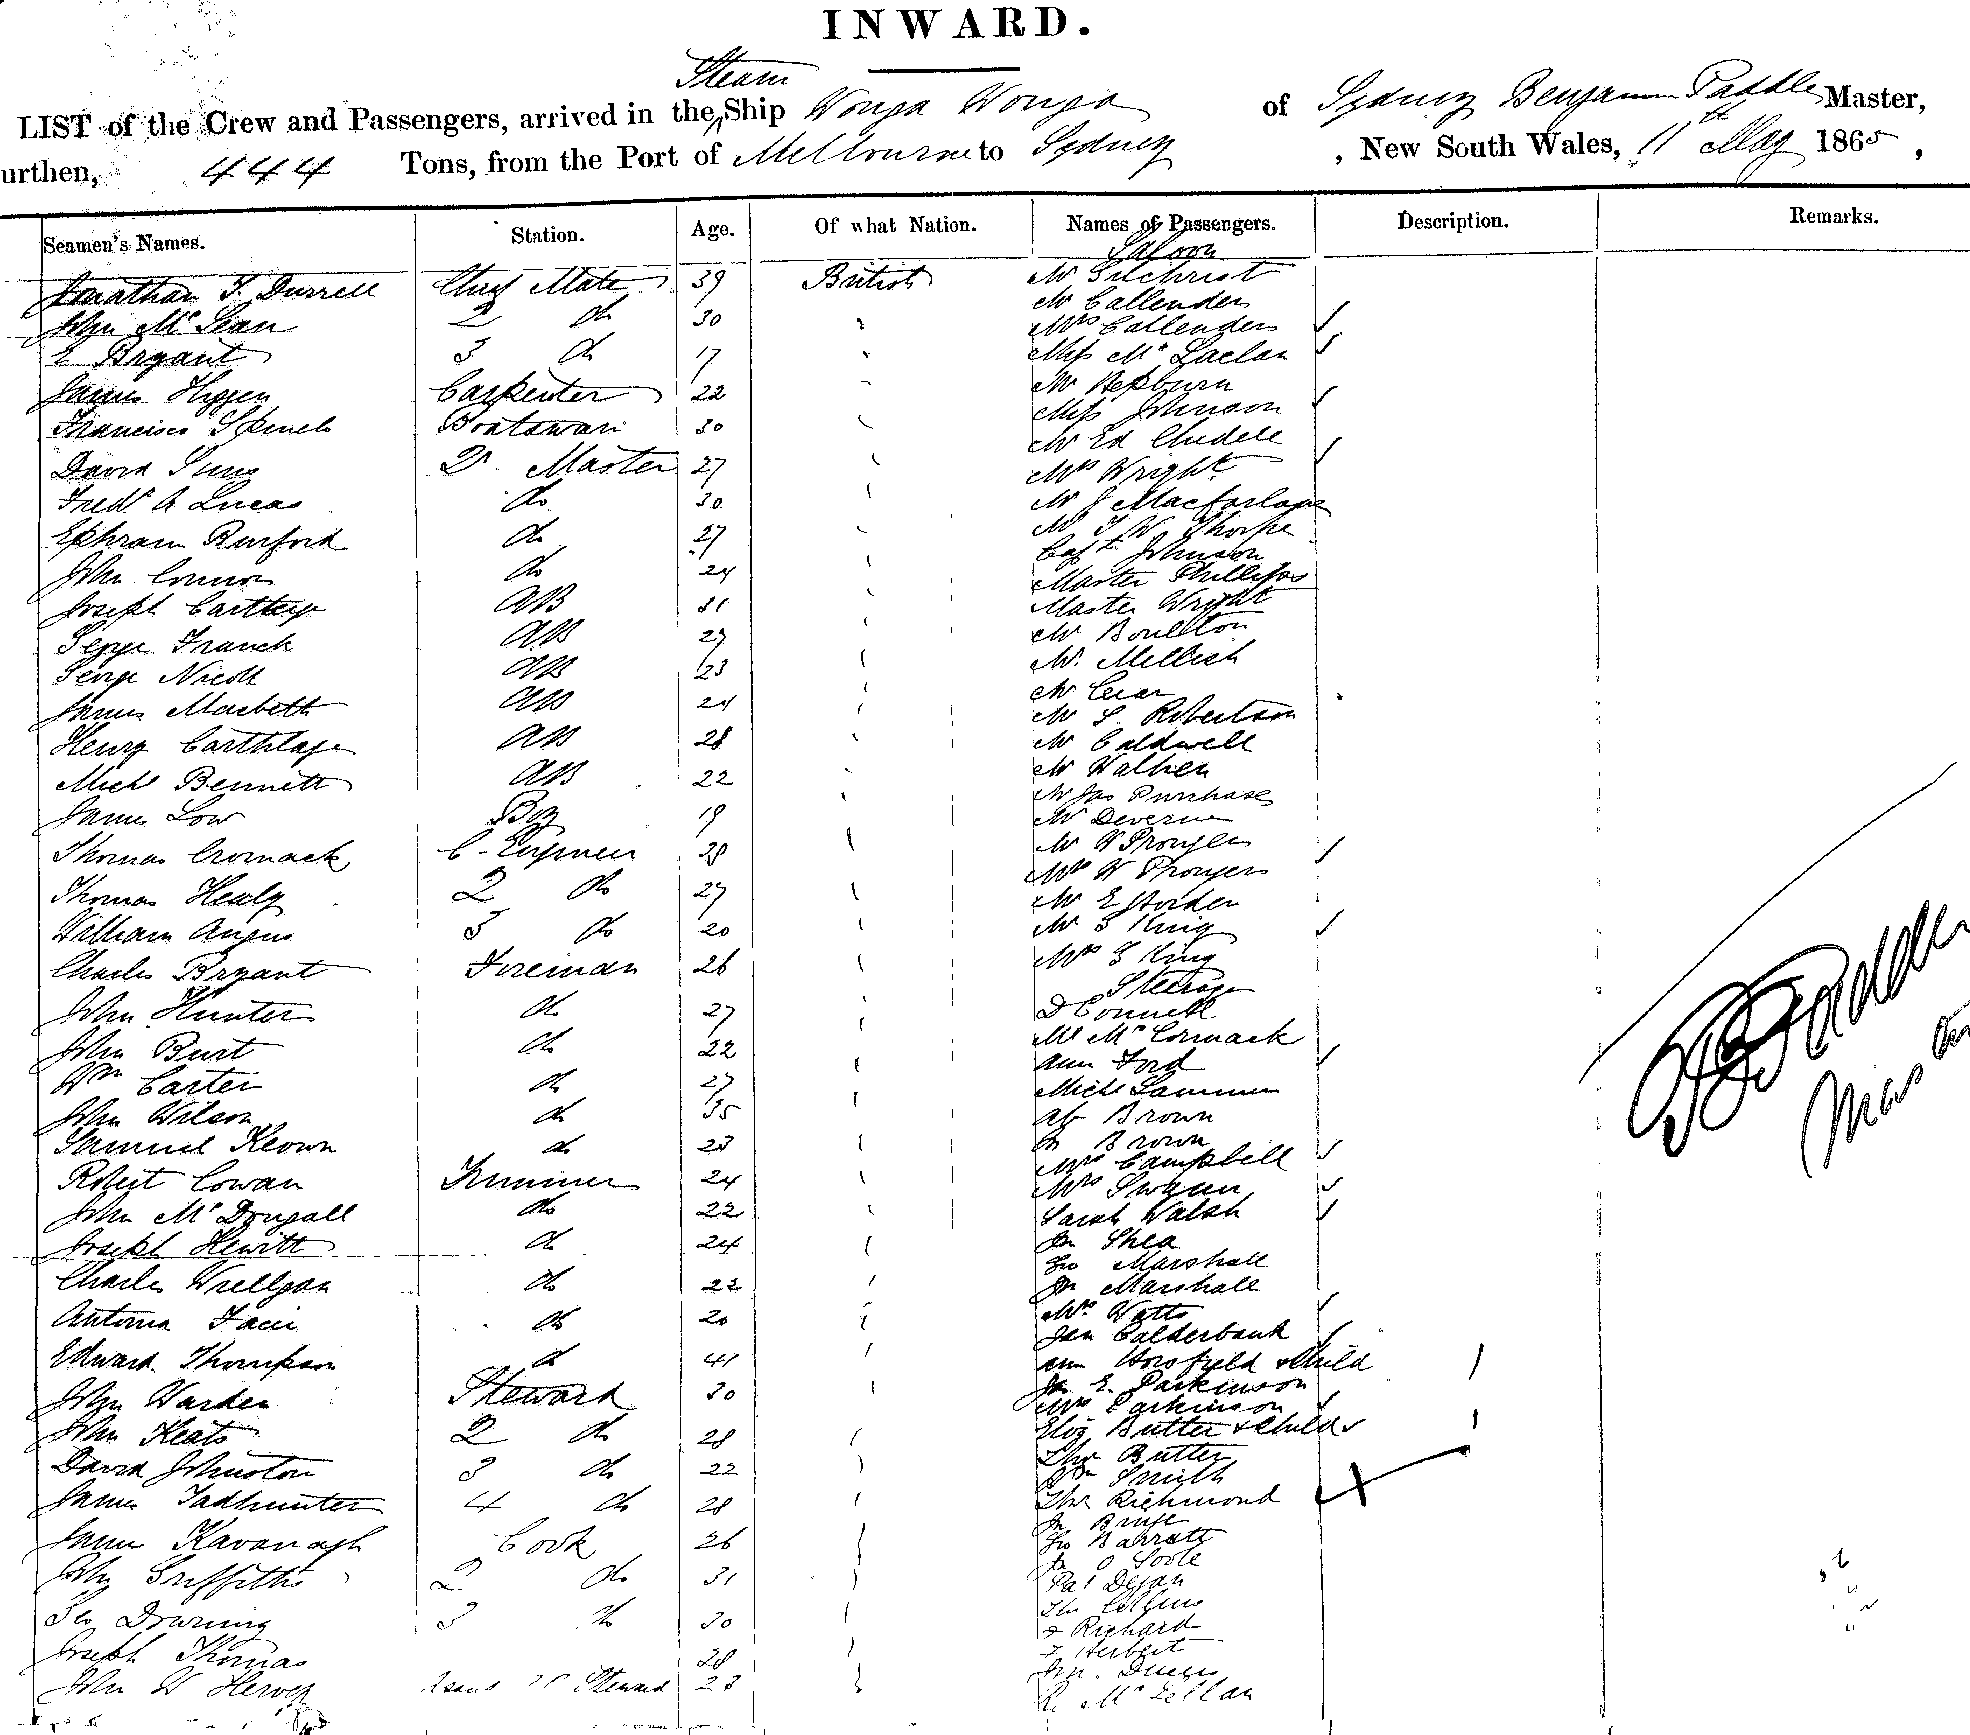 INWARD.
Steam
LIST of the Crew and Passengers, arrived in the Ship Wonga Wonga of Sydney Benjamin Paddle Master,
urthen, 444 Tons, from the Port of Melbourne to Sydney, New South Wales, 11th May 1865,
Seamen's Names. Station. Age. Of what Nation. Names of Passengers. Description. Remarks.
Saloon
Jonathan T. Durrell Chief Mate 39 British Mr Gilchrist
Mr Callender
John McLean 2 do 30 Mrs Callender
E Bryant 3 do 17 Miss McLaclan
James Carpenter 22 Mr Hepburn
Miss Johnson
Francisco Boatswain 30 Mr Ed
David Qr. Master 27 Mrs Wright
Fredk A Lucas do 30 Mr J Macfarlane
Mr T W Thorpe
Ephram Burford do 27 Capt Johnson
John Connor do 24 Master Phillips
Joseph AB 31 Master Wright
George Franck AB 27 Mr Boullton
George Nicoll AB 23 Mr. Mellish
James Macbeth AB 24 Mr
Mr S. Robertson
Henry AB 28 Mr Caldwell
Michl Bennett AB 22 Mr Walker
Mr Jas Purchase
James Low Boy 19 Mr
Thomas Cromack C. Engineer 28 Mr W
Mrs W
Thomas Healy 2 do 27 Mr E Horder
William Angus 3 do 20 Mr S King
Charles Bryant Fireman 26 Mrs S King
Steerage
John Hunter do 27 D Connell
Ml McCormack
John Burt do 22 Ann Ford
Wm Carter do 27 Michl
John Wilson do 35 Brown
Samuel Keown do 23 Jn Brown
Mrs Campbell
Robert Cowan Trimmer 24 Mrs
John McDougall do 22 Sarah Walsh
Joseph Hewitt do 24 Jn Shea
Geo Marshall
Charles do 22 Jn Marshall
Antonia do 20 Mrs Watts
Jan Calderbank
Edward Thompson do 41 Ann Horsfield & Child
Jn E. Parkinson
John Warden Steward 30 Mrs Parkinson
John Keats 2 do 28 Eliz Butter & Child
Thos Butter
David Johnston 3 do 22 Wm Smith
James Tadhunter 4 do 28 Thos Richmond
Jn
James Kavanagh Cook 26 Geo Barratt
Jn
John Griffiths 2 do 31 Pat
Thos
Geo Downing 3 do 30 Richard
Herbert
Joseph Thomas 28
John W Steward 23 R.